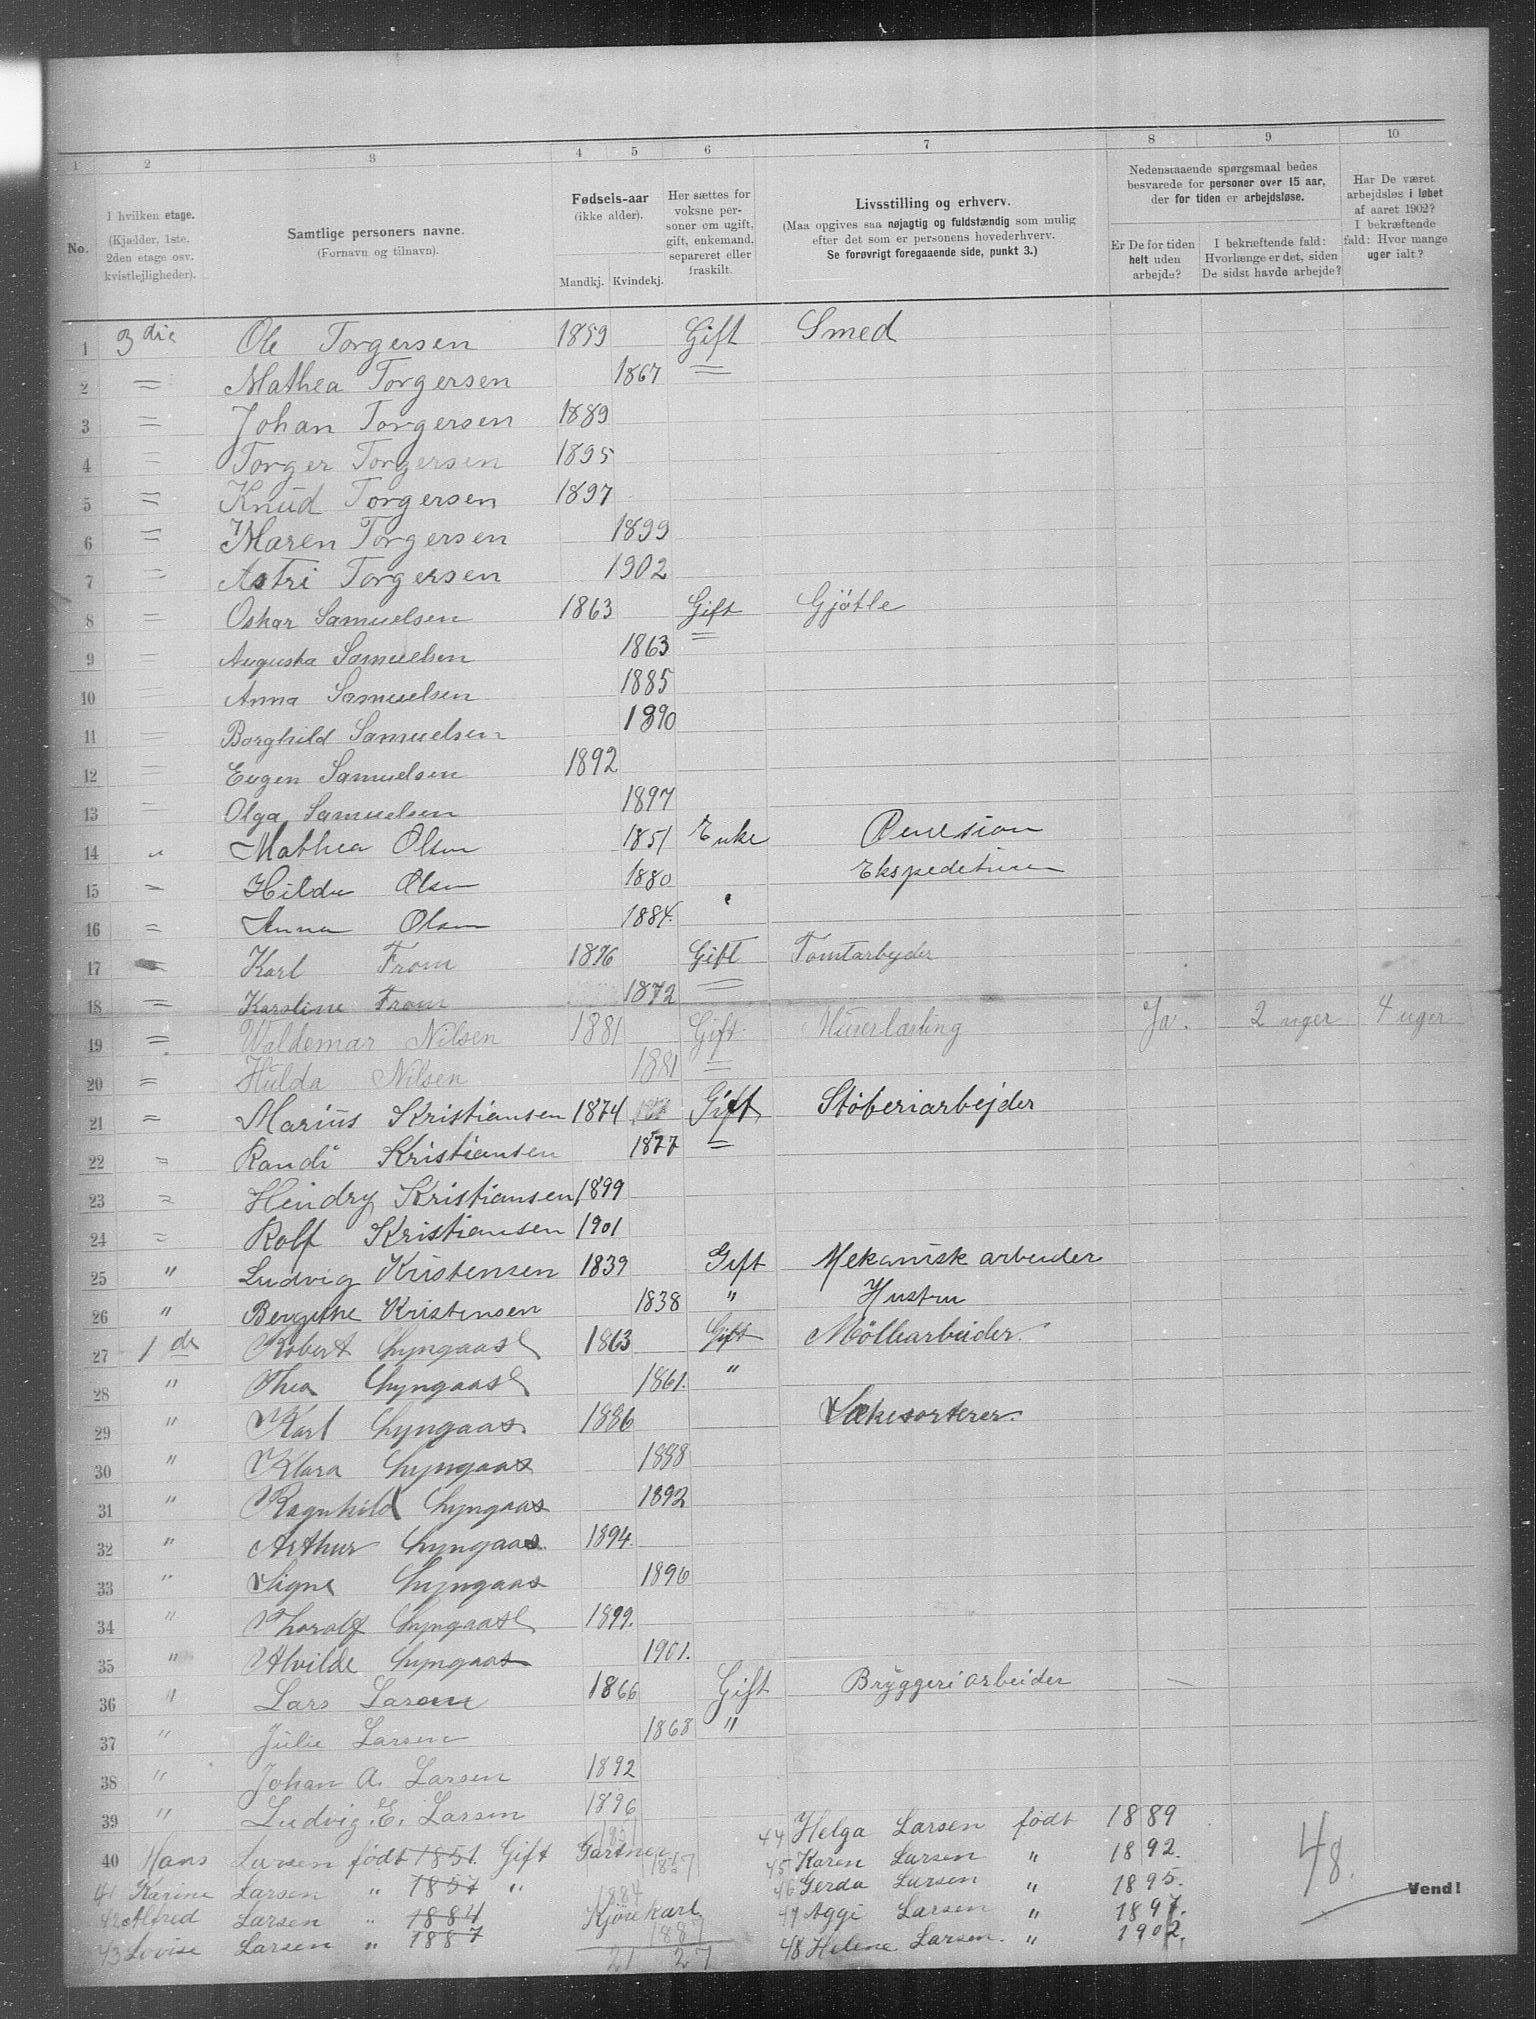 1 2 3 4 5 6 7 8 9 10
No.
I hvilken etage. (Kjælder, 1ste, 2den etage osv. kvistlejligheder).
Samtlige personers navne. (Fornavn og tilnavn).
Fødsels-aar (ikke alder). Mandkj. Kvindekj.
Her sættes for voksne personer om ugift, gift, enkemand, separeret eller fraskilt.
Livsstilling og erhverv. (Maa opgives saa nøjagtig og fuldstændig som mulig efter det som er personens hovederhverv. Se forøvrigt foregaaende side, punkt 3.)
Nedenstaaende spørgsmaal bedes besvarede for personer over 15 aar, der for tiden er arbejdsløse.
Er De for tiden helt uden arbejde?
I bekræftende fald: Hvorlænge er det, siden De sidst havde arbejde?
Har De været arbejdsløs i løbet af aaret 1902? I bekræftende fald: Hvor mange uger ialt?
1 3die Ole Torgersen 1859 Gift Smed
2 = Mathea Torgersen 1867 =
3 = Johan Torgersen 1889
4 = Torger Torgersen 1895
5 = Knud Torgersen 1897
6 = Maren Torgersen 1899
7 = Astri Torgersen 1902
8 = Oskar Samuelsen 1863 Gift Gjötle
9 = Augusta Samuelsen 1863 =
10 = Anna Samuelsen 1885
11 = Borghild Samuelsen 1890
12 = Eugen Samuelsen 1892
13 = Olga Samuelsen 1897
14 " Mathea Olsen 1851 Enke Pension
15 = Hilda Olsen 1880 Ekspeditrice
16 = Anna Olsen 1884.
17 = Karl From 1876 Gift Tomtarbyder
18 = Karoline From 1872 =
19 = Waldemar Nilsen 1881 Gift Murerlærling Ja. 2 uger 4 uger
20 = Hulda Nilsen 1881 =
21 = Marius Kristiansen 1874 Gift Stöberiarbejder
22 = Randi Kristiansen 1877 =
23 = Hendry Kristiansen 1899
24 = Rolf Kristiansen 1901
25 " Ludvig Kristensen 1839 Gift Mekanisk arbeider
26 " Bergitne Kristensen 1838 " Hustru
27 1de Robert Lyngaas 1863 Gift Möllearbeider.
28 " Thea Lyngaas 1861. "
29 " Karl Lyngaas 1886 Sækesorterer.
30 " Klara Lyngaas 1888
31 " Ragnhild Lyngaas 1892
32 " Arthur Lyngaas. 1894.
33 " Signe Lyngaas 1896
34 " Thoralf Lyngaas 1899.
35 " Alvilde Lyngaas 1901.
36 " Lars Larsen 1866 Gift Bryggeriarbeider
37 " Julie Larsen 1868 "
38 " Johan A. Larsen 1892
39 " Ludvig. E. Larsen 1896
40 Hans Larsen født 1851. Gift Gartner 1851
41 Karine Larsen " 1857 " 1857
42 Alfred Larsen " 1884 Kjörekarl. 1884
43 Lovise Larsen " 1887 1887
21 27
44 Helga Larsen født 1889
45 Karen Larsen " 1892.
46 Gerda Larsen " 1895.
47 Aggi Larsen " 1897.
48 Helene Larsen. " 1902.
48.
Vend!